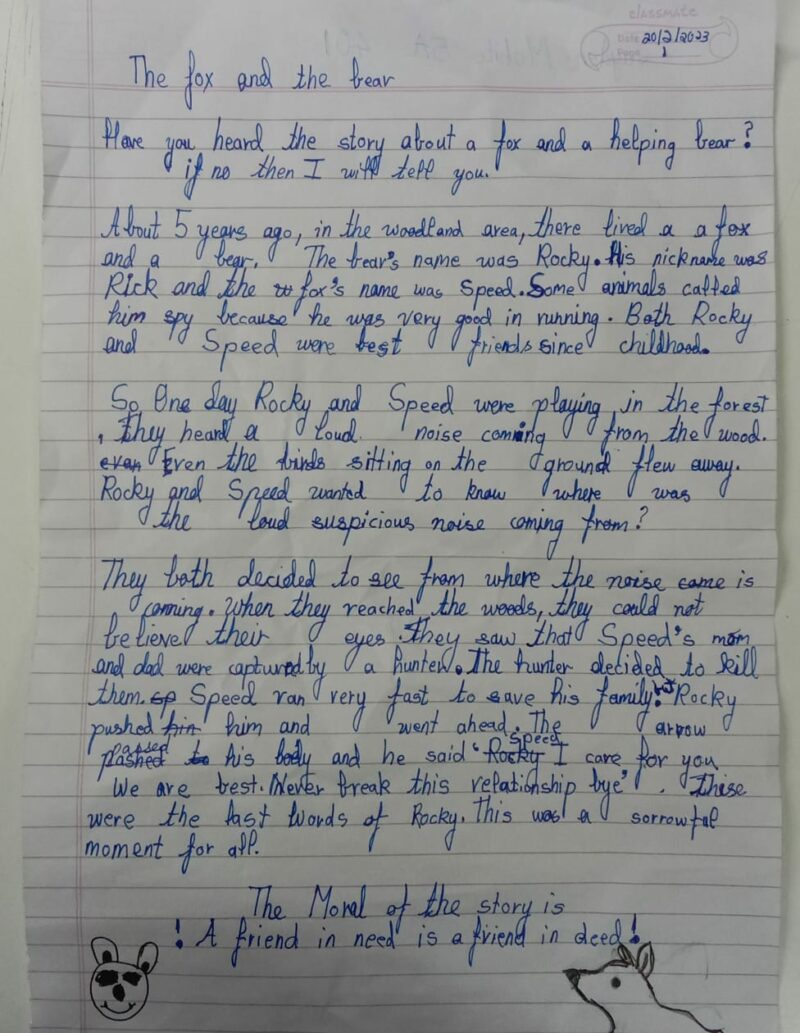 classmate
Date 20/2/2023
Page 1
The fox and the bear
Have you heard the story about a fox and a helping bear?
if no then I will tell you.
About 5 years ago, in the woodland area, there lived a a fox
and a bear. The bear's name was Rocky. His nickname was
Rick and the fox's name was Speed. Some animals called
him spy because he was very good in running. Both Rocky
and Speed were best friends since childhood.
So One day Rocky and Speed were playing in the forest
, They heard a loud noise coming from the wood.
even Even the birds sitting on the ground flew away.
Rocky and Speed wanted to know where was
the loud suspicious noise coming from?
They both decided to see from where the noise came is
coming. When they reached the woods, they could not
believe their eyes. They saw that Speed's mom
and dad were captured by a hunter. The hunter decided to kill
them. Speed ran very fast to save his family. Rocky
pushed him him and went ahead. The arrow
passed
pushed to his body and he said 'Rocky I care for you
Speed
We are best. Never break this relationship bye'. These
were the last words of Rocky. This was a sorrowful
moment for all.
The Moral of the story is
! A friend in need is a friend in deed!